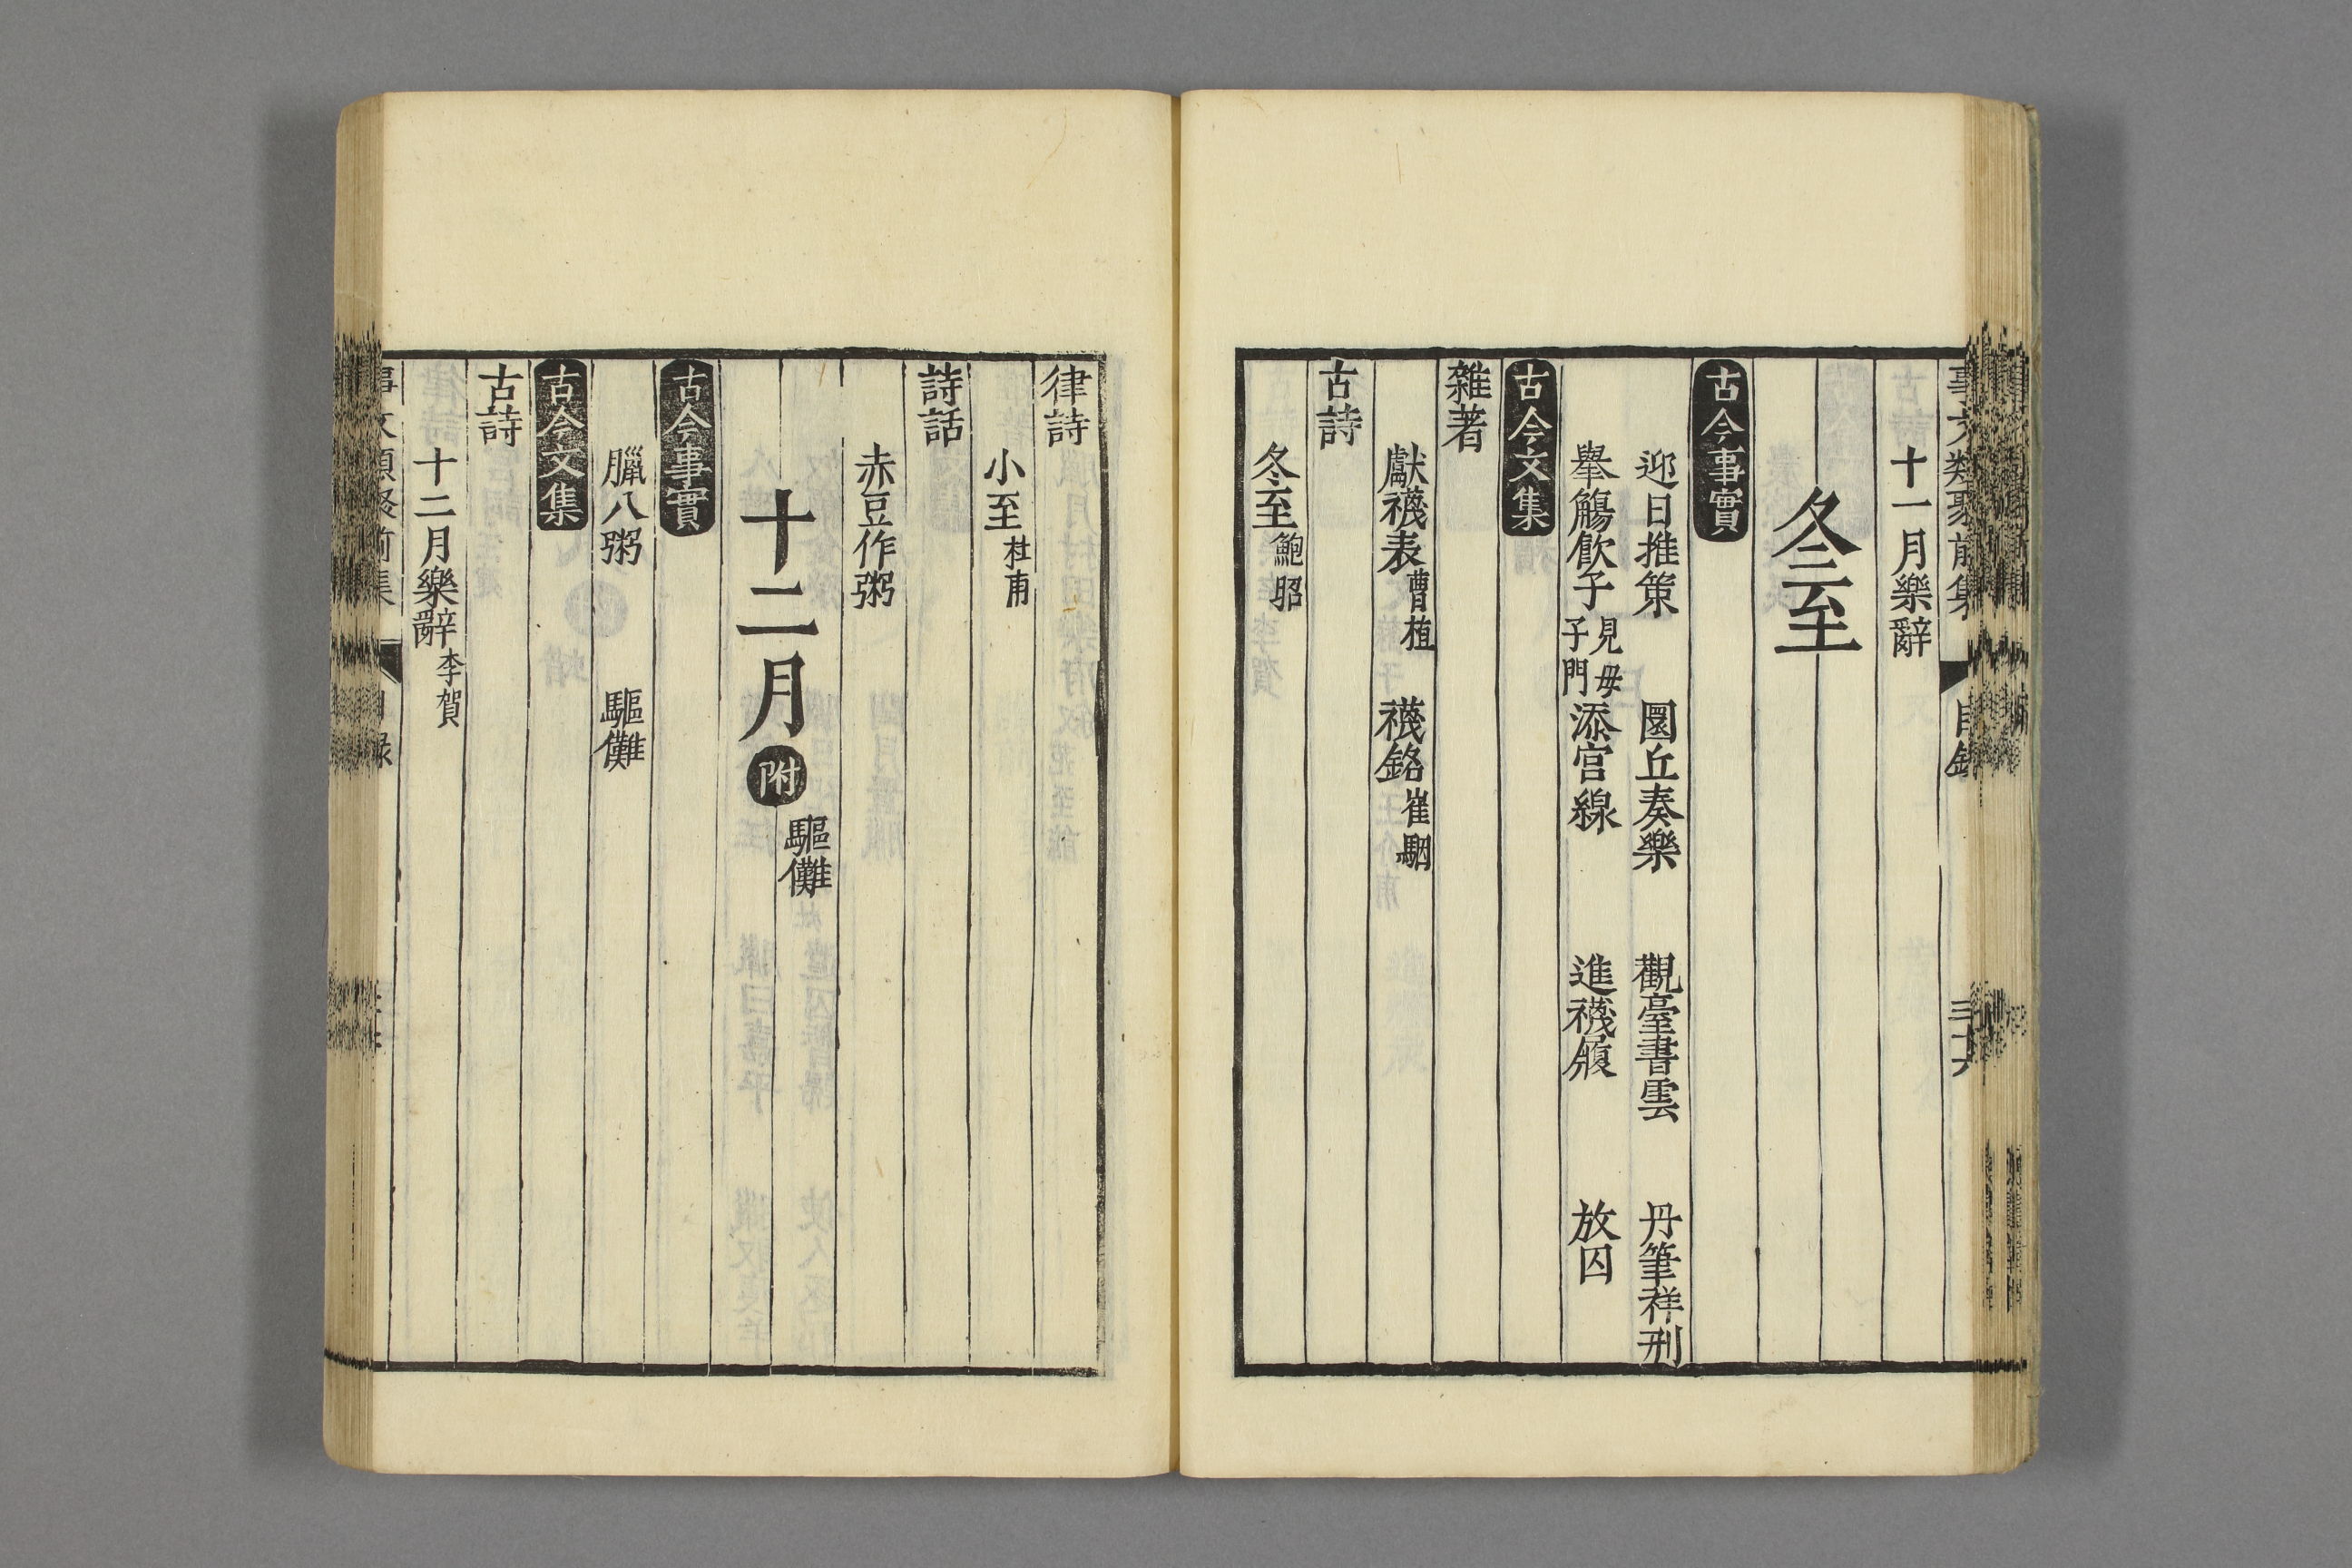 事文類聚前集 目録
十一月樂辭
冬至
古今事實
迎日推策 圜丘奏樂 觀臺書雲 丹筆祥刑
舉觴飲子 見毋子門 添宮線 進襪履 放囚
古今文集
雜著
獻襪表 曹植 襪銘 崔駰
古詩
冬至 鮑昭
律詩
小至 杜甫
詩話
赤豆作粥
十二月 附 驅儺
古今事實
臘八粥 驅儺
古今文集
古詩
十二月樂辭 李賀